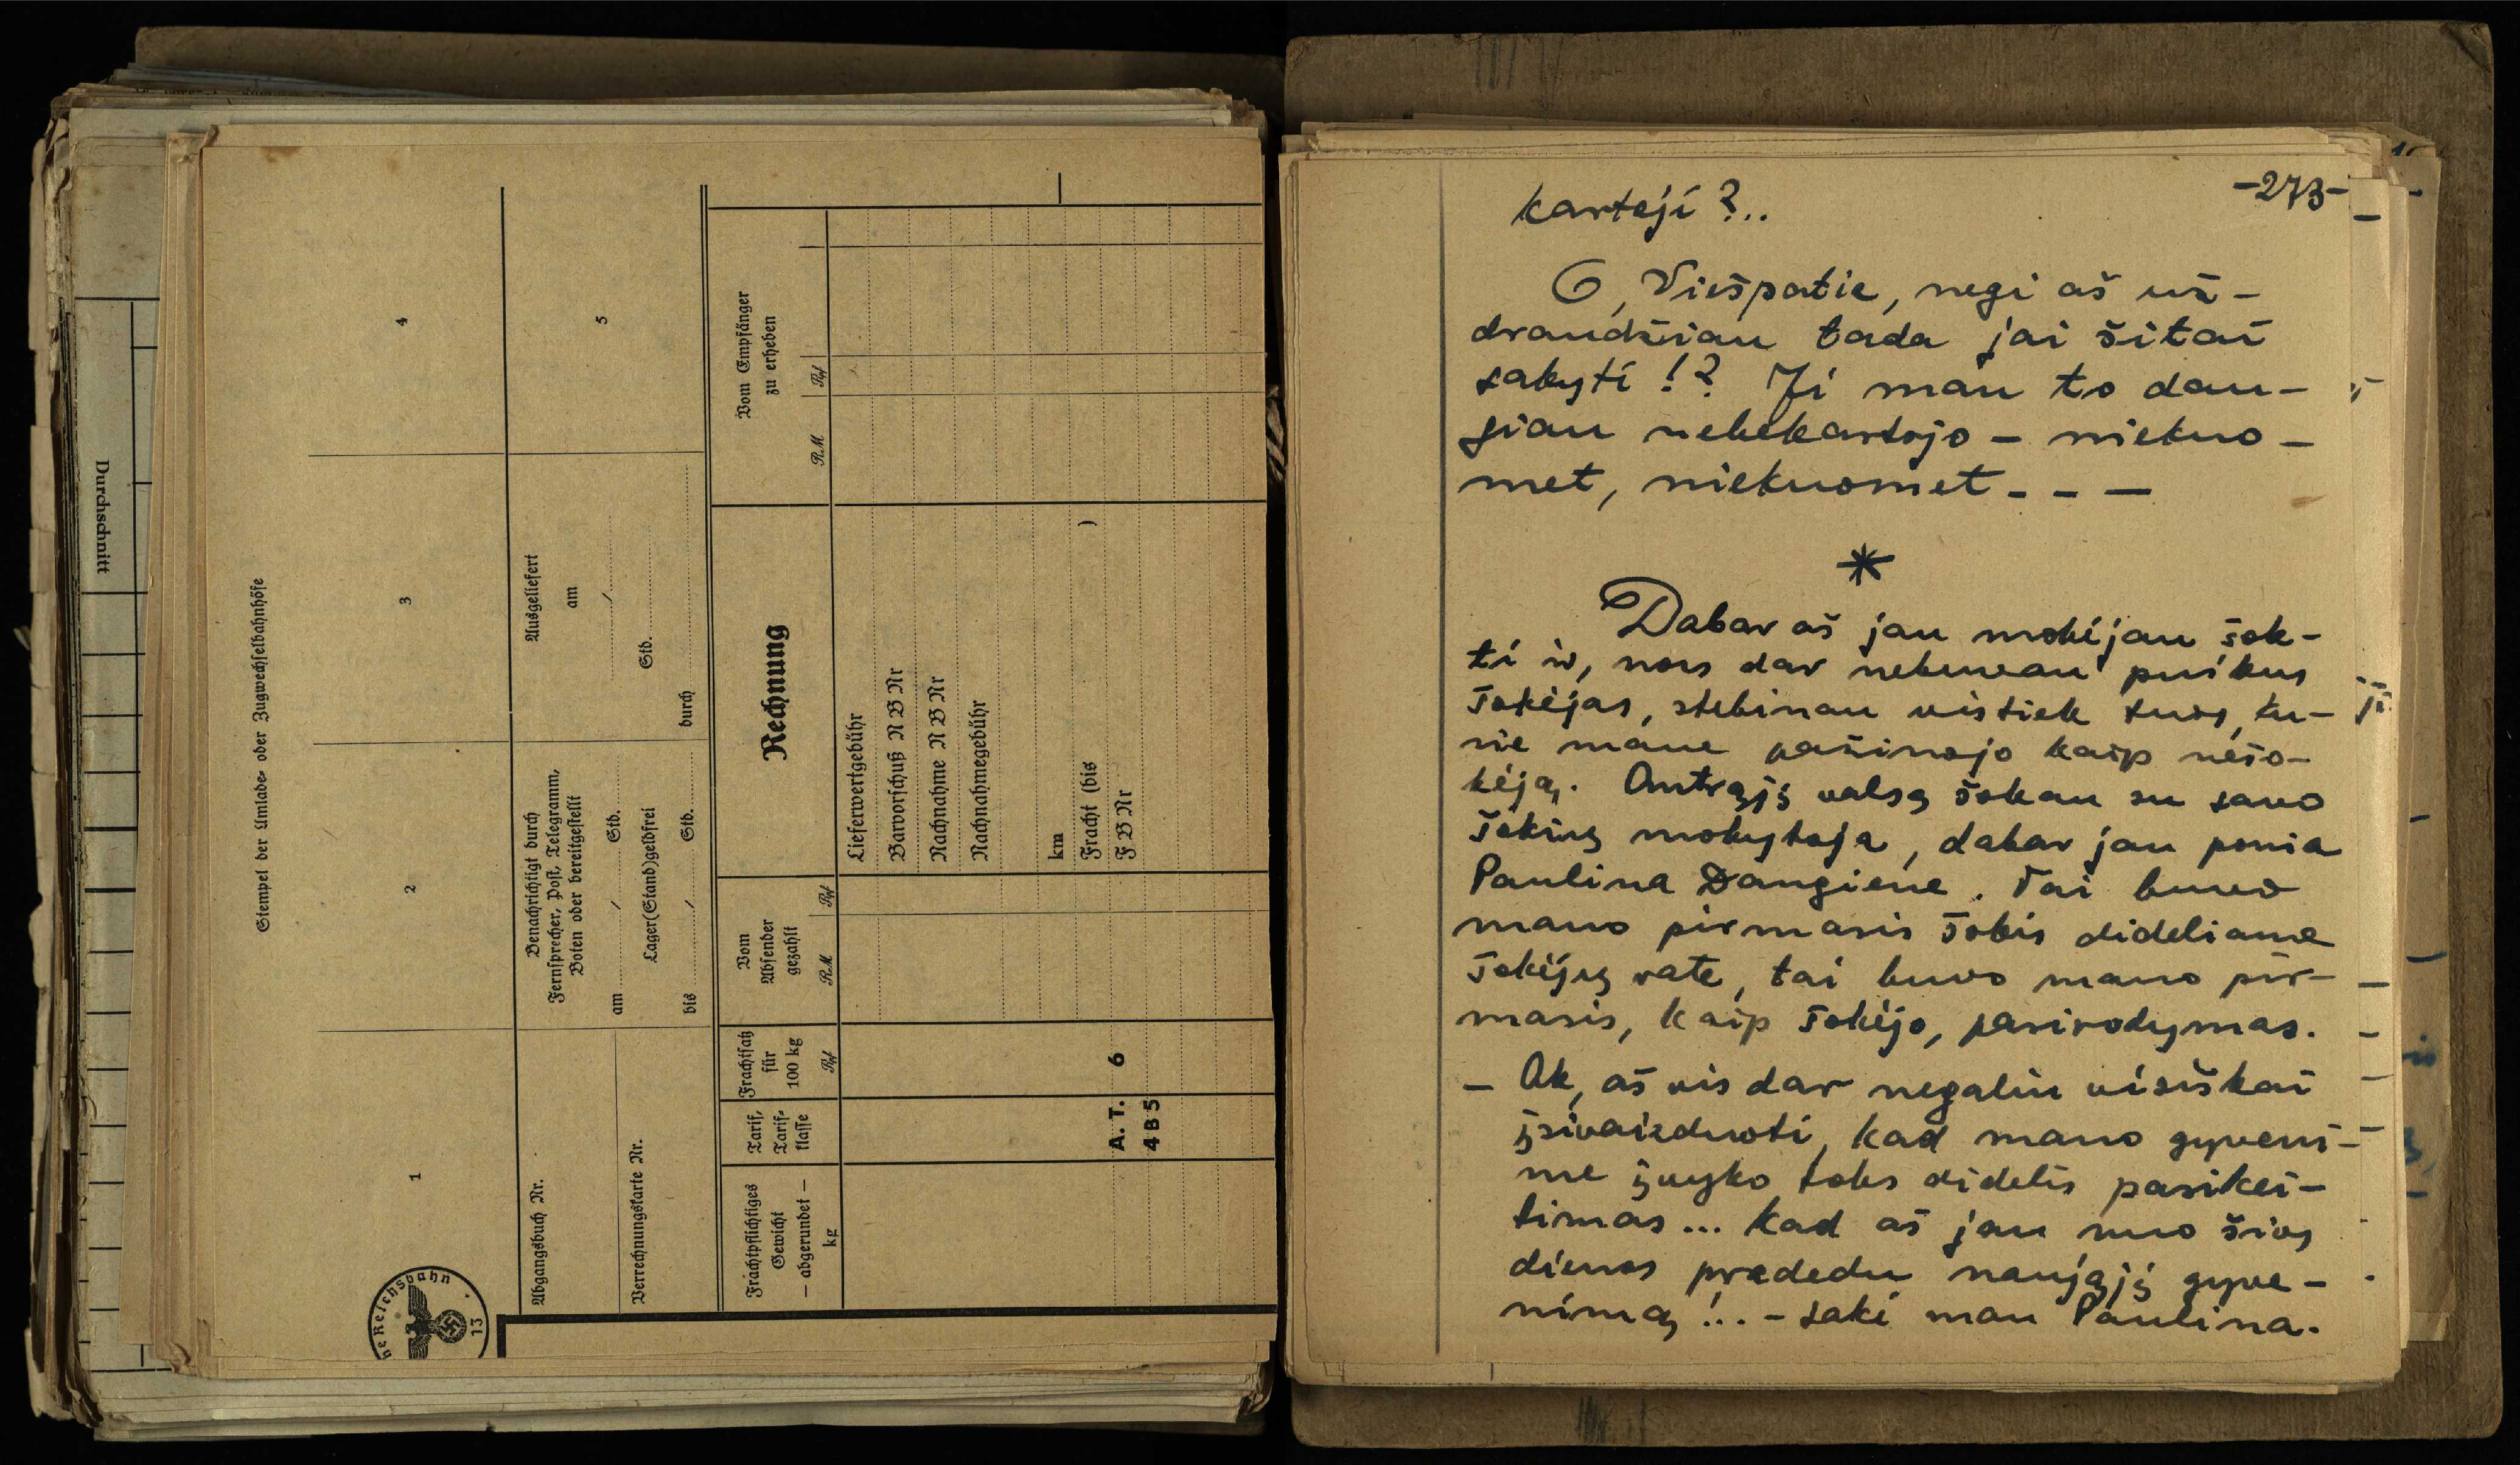 Durchschnitt
Stempel der Umlade- oder Zugwechselbahnhöfe
1
2
3
4
Abgangsbuch Nr.
Verrechnungskarte Nr.
Benachrichtigt durch
Fernsprecher, Post, Telegramm,
Boten oder bereitgestellt
am / Std.
Lager(Stand)geldfrei
bis / Std.
Ausgeliefert
am
/
Std.
durch
5
Frachtpflichtiges
Gewicht
— abgerundet —
kg
Tarif,
Tarif-
klasse
Frachtsatz
für
100 kg
Rpf
Vom
Absender
gezahlt
RM Rpf
Rechnung
Vom Empfänger
zu erheben
RM Rpf
Lieferwertgebühr
Barvorschuß N B Nr
Nachnahme N B Nr
Nachnahmegebühr
km
Fracht (bis )
A. T. 6 F B Nr
4 B 5
ne Reichsbahn
13
-273-
kartėjí?..
O, Viešpatie, negi aš už-
draudžiau tada jai šitaí
sakytí!? Jí man to dau-
giau nebekartojo – niekuo-
met, niekuomet - - —
*
Dabar aš jau mokėjau šok-
tí ir, nors dar nebuvau puíkus
šokėjas, stebinau vistiek tuos, ku-
rie mane pažinojo kaip nešo-
kėją. Antrąjį valsą šokau su savo
šokių mokytoja, dabar jau ponia
Paulina Dangiene. Tai buvo
mano pirmasis šokis dideliame
šokėjų rate, tai buvo mano pir-
masis, kaip šokėjo, pasirodymas.
– Ak, aš vis dar negaliu vísiškaí
įsivaizduoti, kad mano gyvení-
me įvyko toks didelis pasikei-
timas... kad aš jau nuo šios
dienos pradedu naująjį gyve-
nímą!.. – sakė man Paulina.